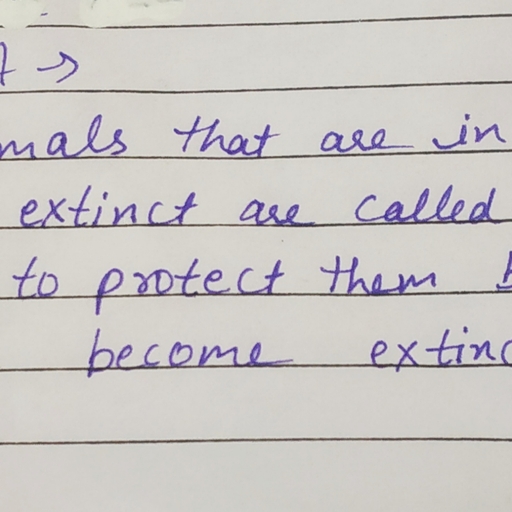 →
mals that are in
extinct are called
to protect them
become extinc